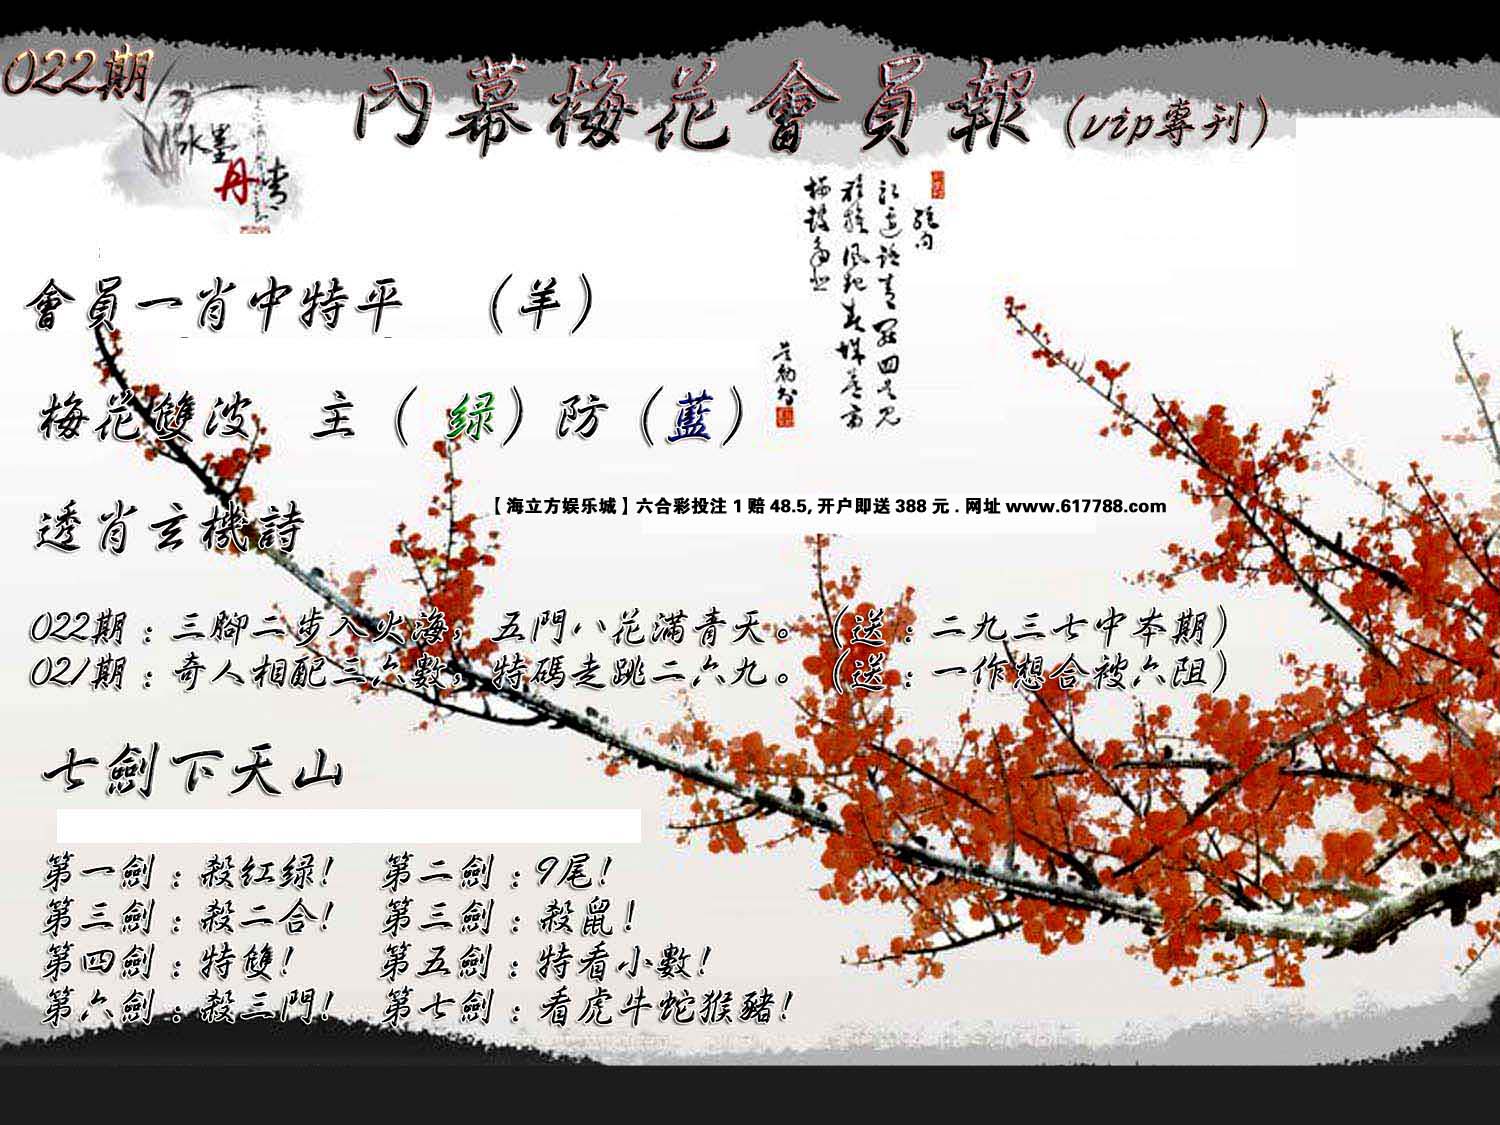 022期
內幕梅花會員報(vip專刊)
水墨
丹青
會員一肖中特平 (羊)
梅花雙波 主(绿)防(藍)
【海立方娱乐城】六合彩投注1赔48.5,开户即送388元.网址www.617788.com
透肖玄機詩
022期:三腳二步入火海,五門八花滿青天。(送:二九三七中本期)
021期:奇人相配三六數,特碼走跳二六九。(送:一作想合被六阻)
七劍下天山
第一劍:殺紅绿! 第二劍:9尾!
第三劍:殺二合! 第三劍:殺鼠!
第四劍:特雙! 第五劍:特看小數!
第六劍:殺三門! 第七劍:看虎牛蛇猴豬!